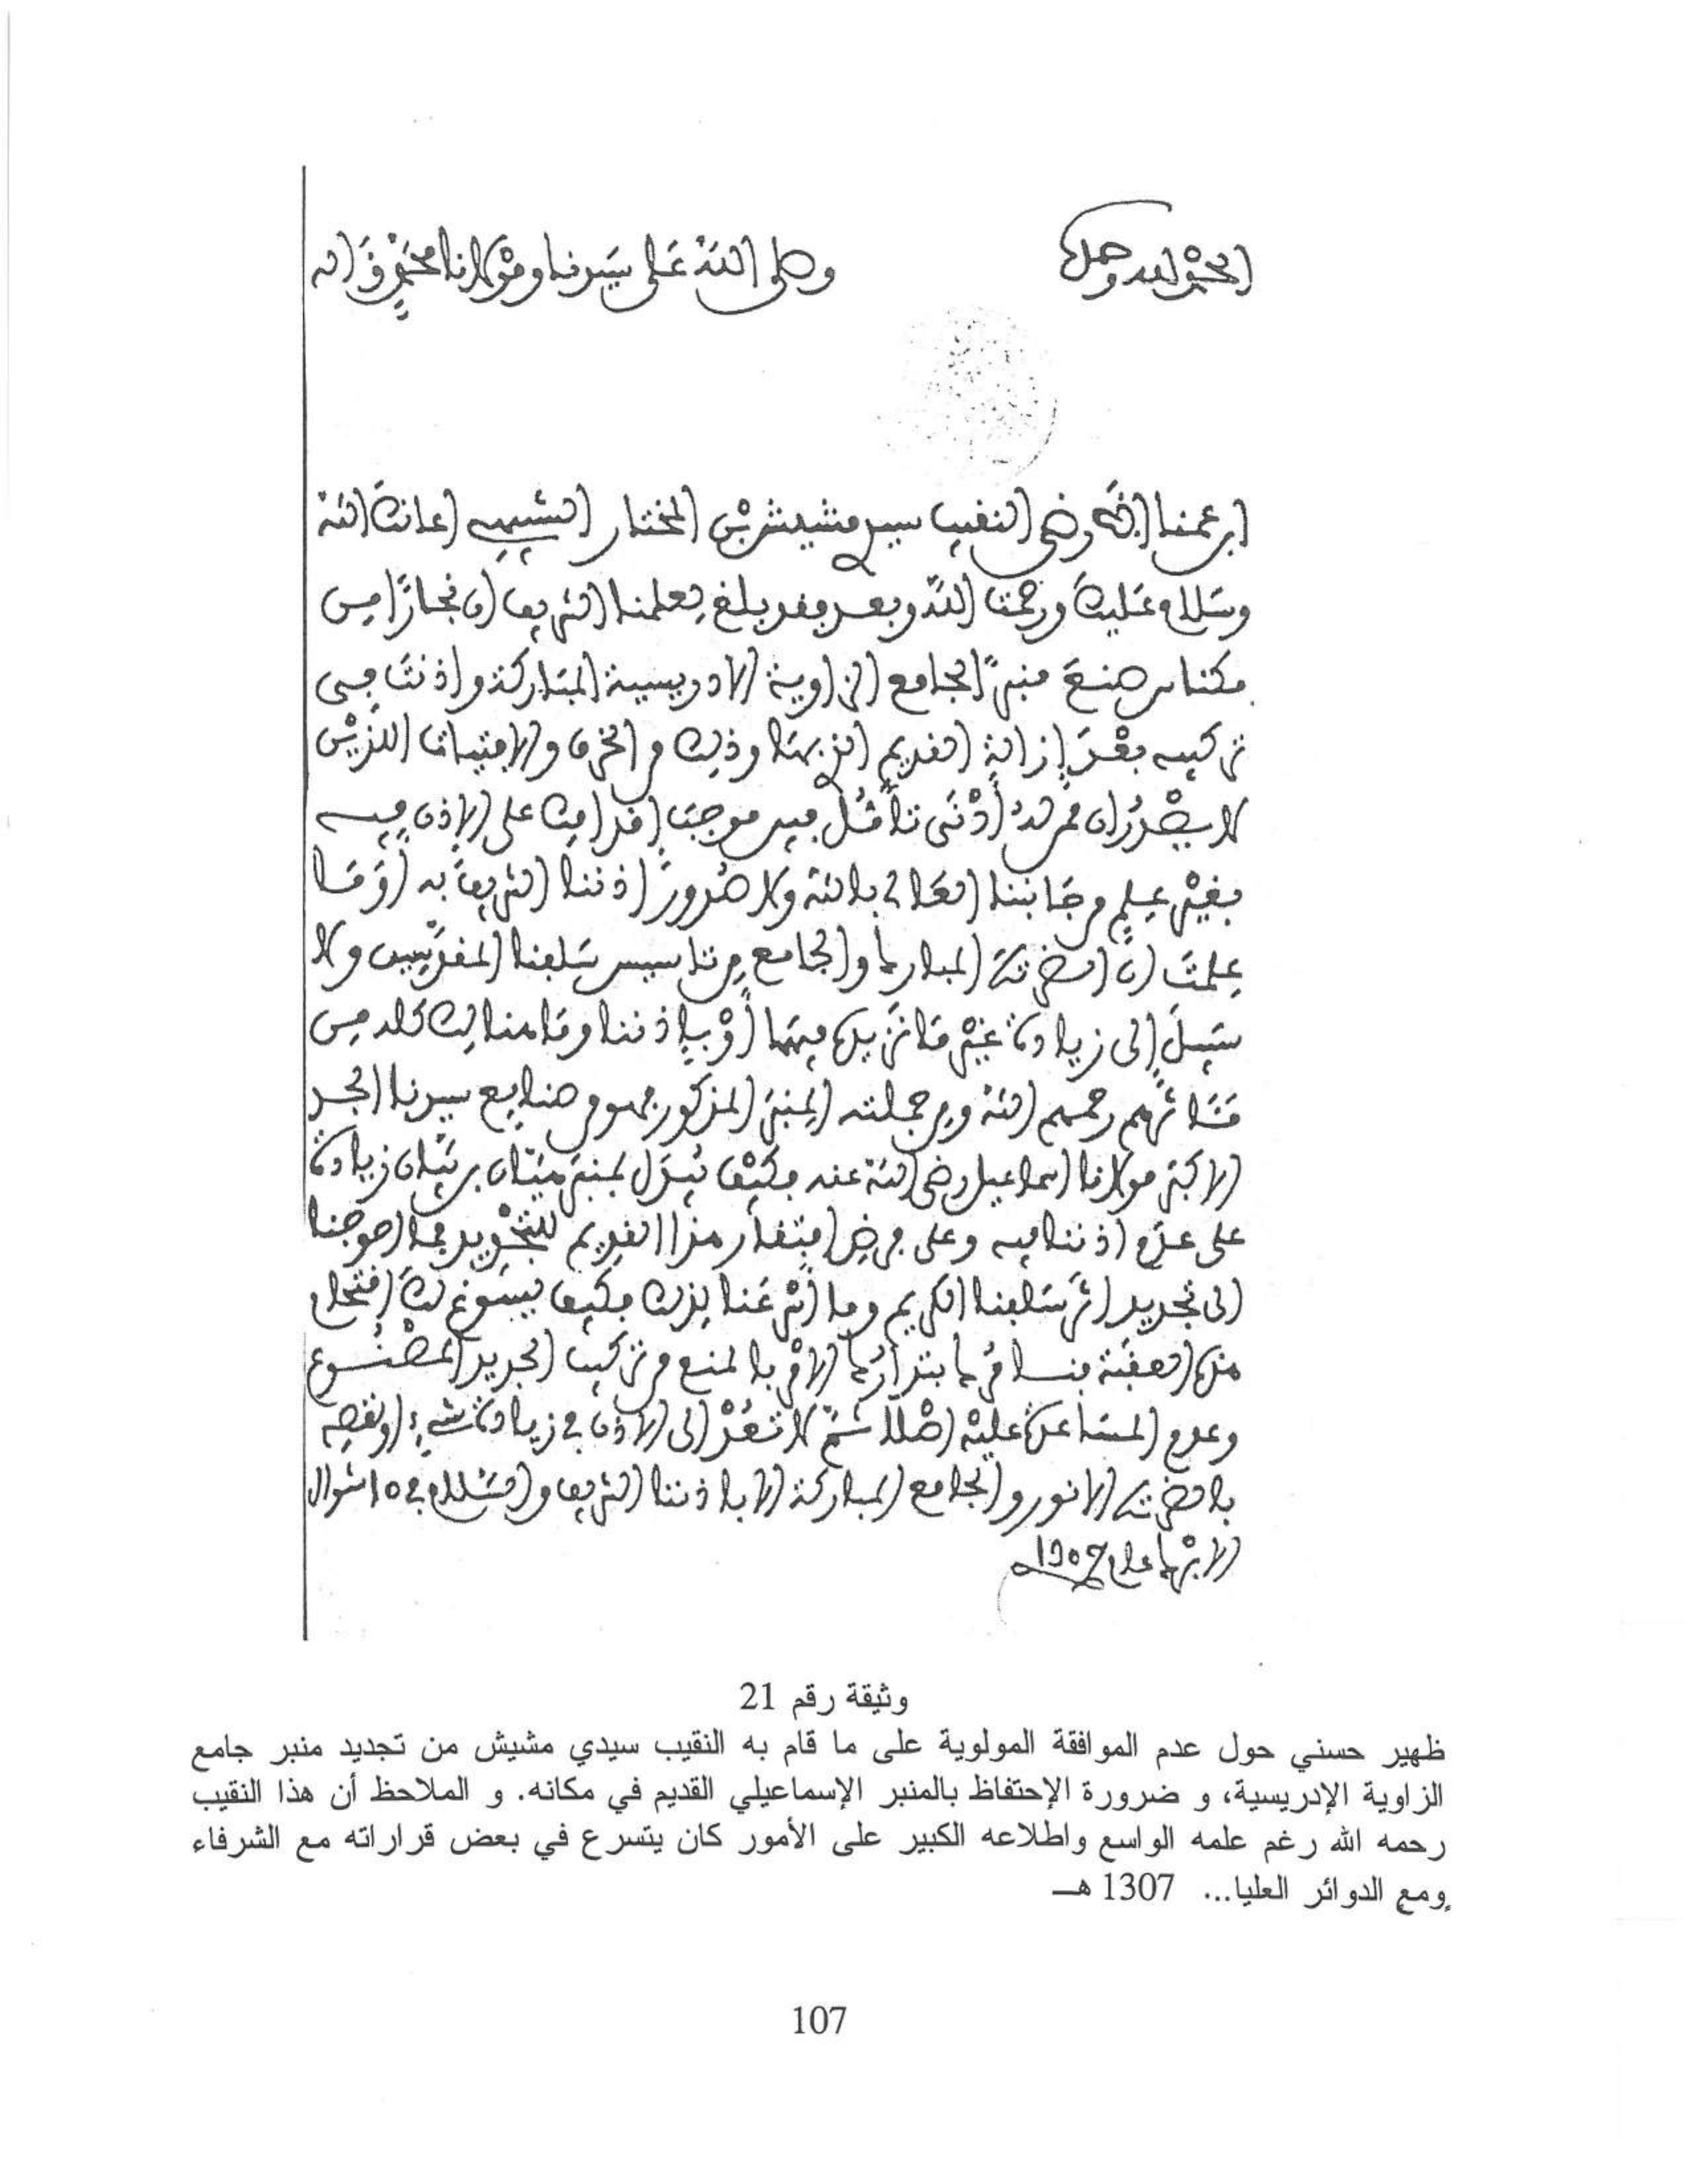 الحمد لله وحده
وصلى الله على سيدنا ومولانا محمد وءاله
ابن عمنا الأرضى النقيب سيدي مشيش بن المختار الشبيهي أعانك الله
وسلام عليك ورحمت الله وبعد فقد بلغ لعلمنا الشريف أن نجارا من
مكناس صنع منبرا لجامع الزاوية الادريسية المباركة واذنت في
تركيبه بعد إزالة القديم الذي بها وذلك من الخرق والافتيات اللذين
لا يصدران ممن له أدنى تأمل فبين موجب إقدامك على الإذن فيه
بغير علم من جانبنا العالي بالله ولا صدور إذننا الشريف به أو ما
علمت أن الضريح المبارك والجامع من تاسيس سلفنا المقدسين ولا
سبيل إلى زيادة غير ما نزيده فيهما أو بإذننا وما هنالك كله من
مئاثرهم رحمهم الله ومن جملته المنبر المذكور فهو من صنايع سيدنا الجد
الاكبر مولانا اسماعيل رضي الله عنه فكيف يبدل بمنبر زيادة
على عدم إذننا فيه وعلى فرض افتقار هذا القديم للتجديد فما أحوجنا
الى تجديد اثر سلفنا الكريم وما أثر عنا بذلك فكيف يسوغ لك اقتحام
هذه العقبة فنامرك بتدارك الأمر بالمنع من تركيب الجديد المصنوع
وعدم المساعدة عليه أصلا ثم لا تعد إلى الاذن في زيادة شيء أو نقصه
بالضريح الانور والجامع المباركة الا باذننا الشريف والسلام في 15 شوال
الابرك عام 1307
وثيقة رقم 21
ظهير حسني حول عدم الموافقة المولوية على ما قام به النقيب سيدي مشيش من تجديد منبر جامع
الزاوية الإدريسية، و ضرورة الإحتفاظ بالمنبر الإسماعيلي القديم في مكانه. و الملاحظ أن هذا النقيب
رحمه الله رغم علمه الواسع واطلاعه الكبير على الأمور كان يتسرع في بعض قراراته مع الشرفاء
ومع الدوائر العليا... 1307 هـ
107